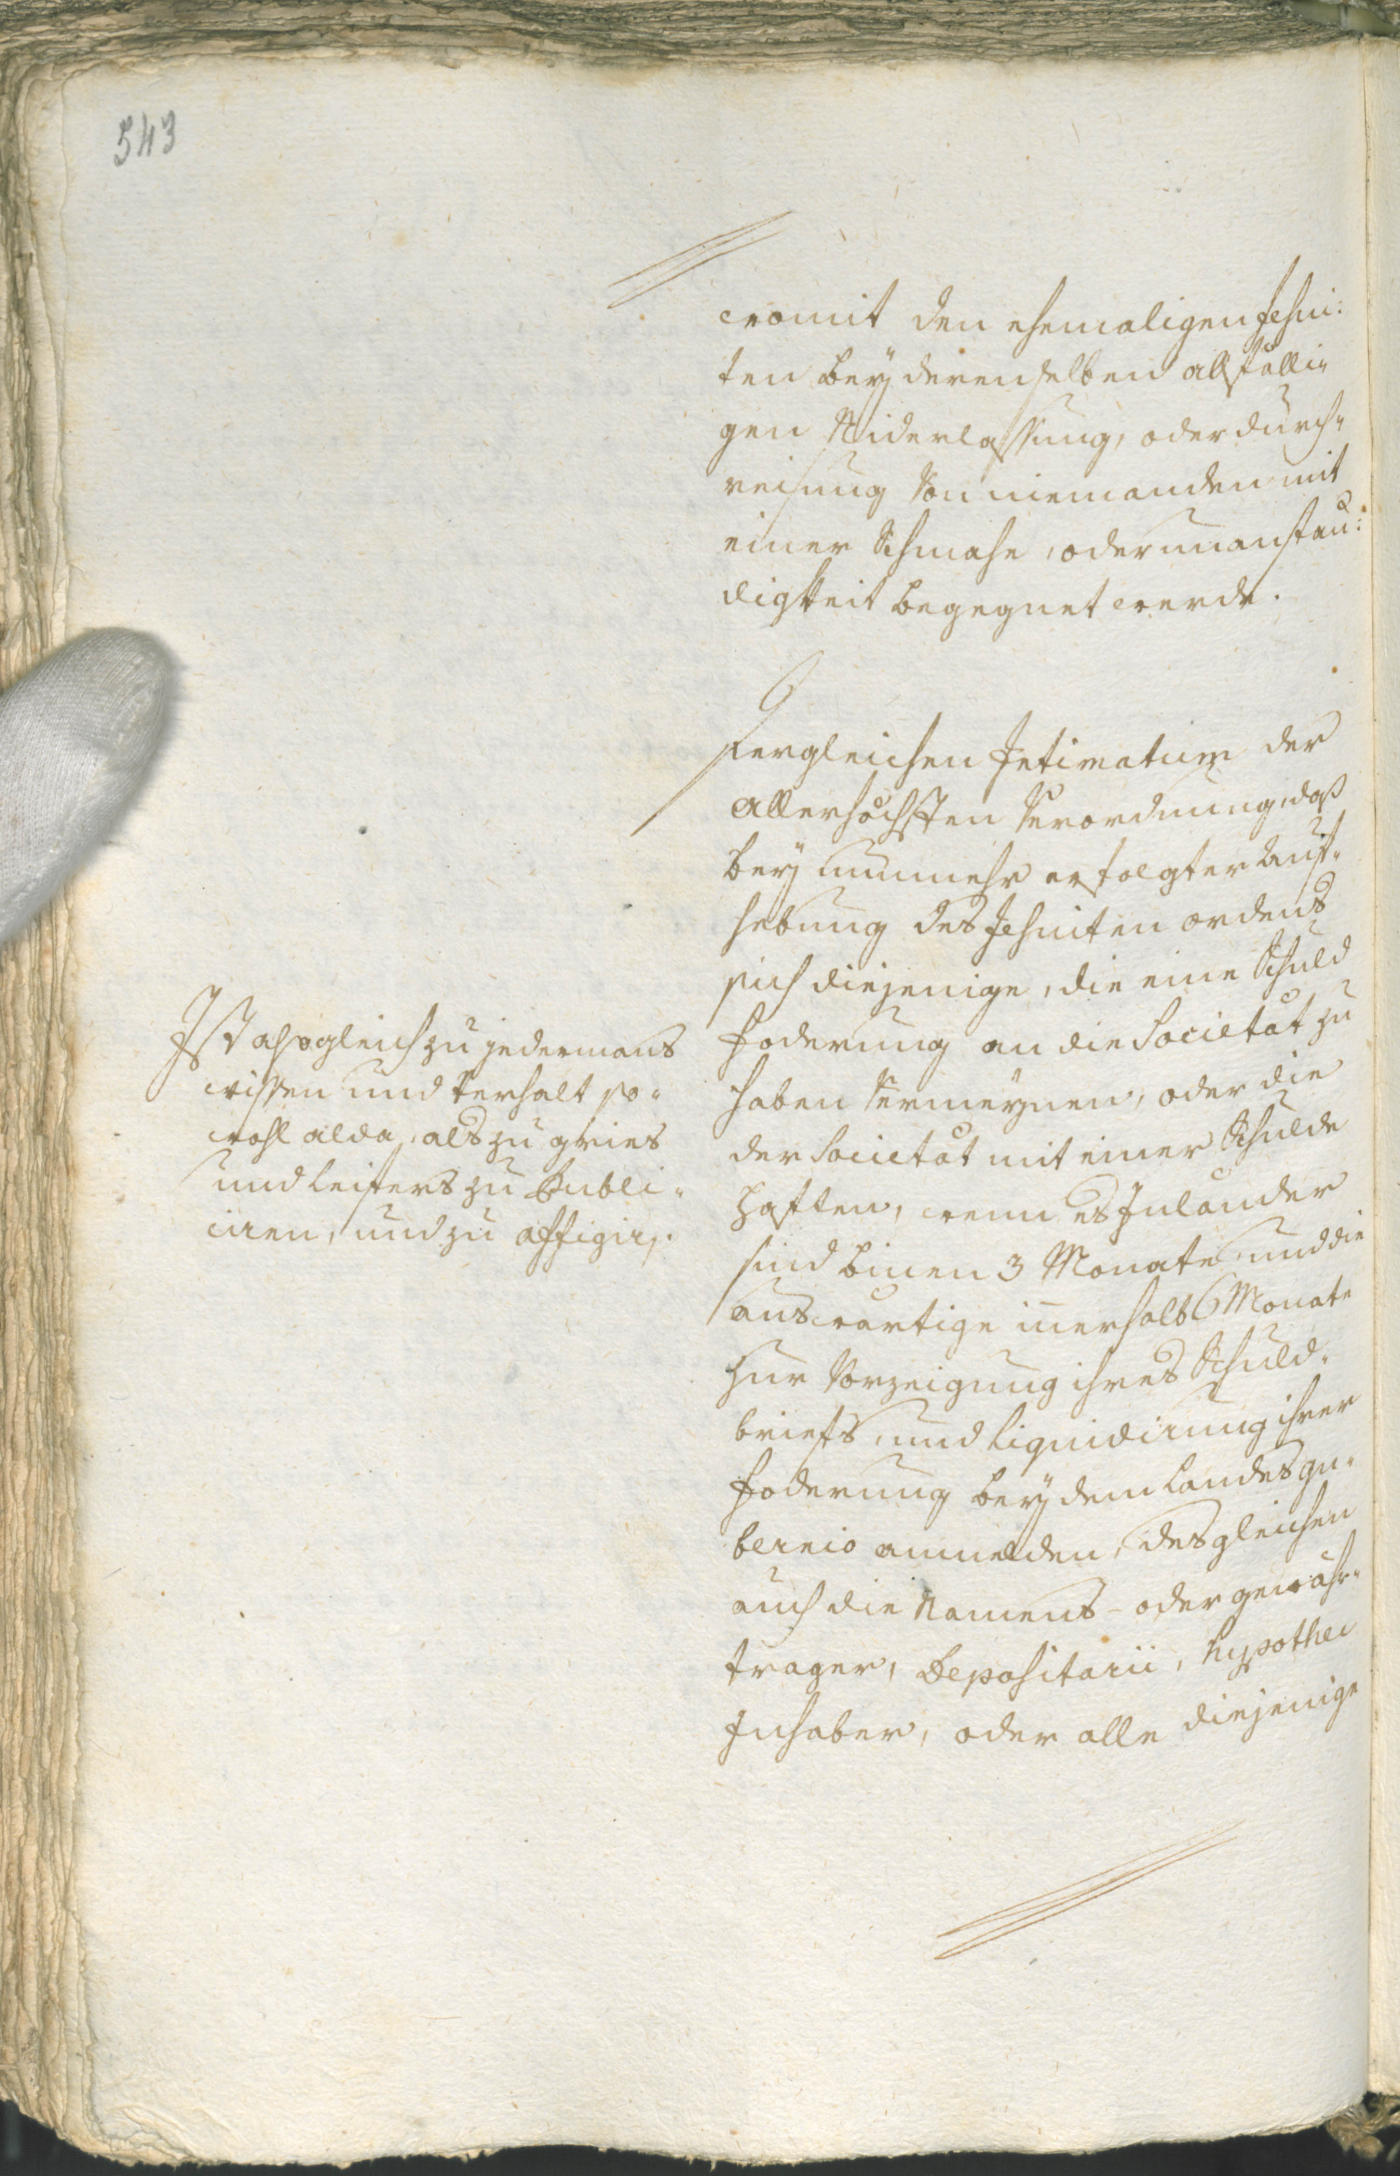 543
womit den ehemaligen Jesui:
ten bey derenselben allfälli=
gen Niderlassung, oder durch=
reisung von niemanden mit
einer Schmahe, oder unanstän:
digkeit begegnet werde.
Dergleichen Intimatum der
Allerhöchsten Verordnung, daß
bey nunmehr erfolgter Auf=
hebung des Jesuiten ordens
sich diejenige, die eine Schuld
foderung an die Societät zu
haben vermeynen, oder die
der Societät mit einer Schulde
hafften, wenn es Inländer
sind binen 3 Monate und die
auswärtige inerhalb 6 Monate
zur Vorzeigung ihres Schuld=
briefs, und liquidirung ihrer
foderung bey dem Landesgu=
bernio anmelden, desgleichen
auch die Namens- oder gewähr=
trager, Depositarii, hypothec
Inhaber, oder alle diejenige
Ist also gleich zu jedermans
wissen und Verhalt so=
wohl alda, als zu gries
und Leifers zu Publi=
ciren, und zu affigirn.